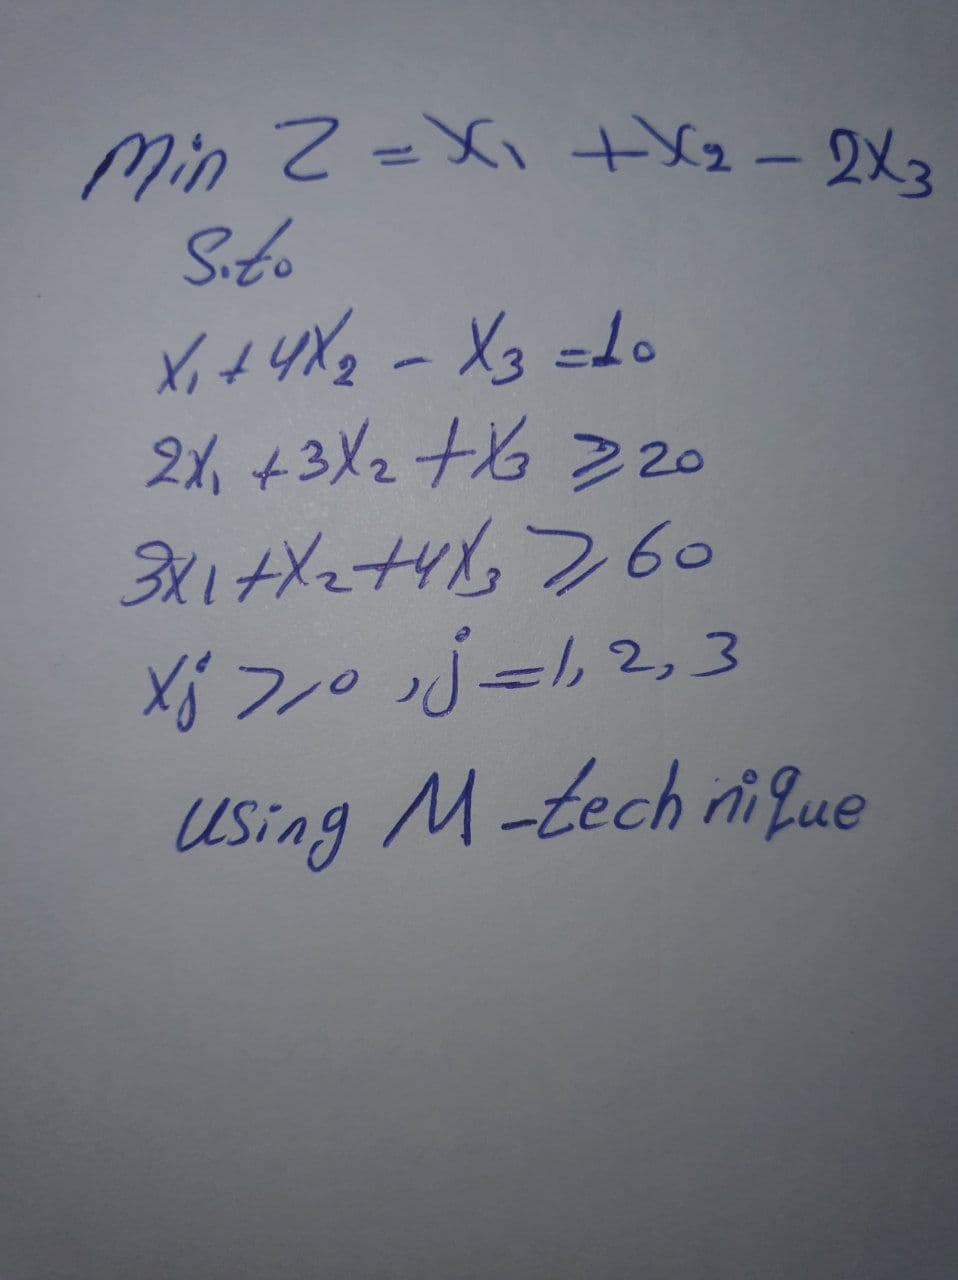 Min Z = X₁ + X₂ - 2X₃
S.to
X₁ + 4X₂ - X₃ = 10
2X₁ + 3X₂ + X₃ ≥ 20
3X₁ + X₂ + 4X₃ ≥ 60
Xj ≥ 0 , j = 1, 2, 3
using M-technique